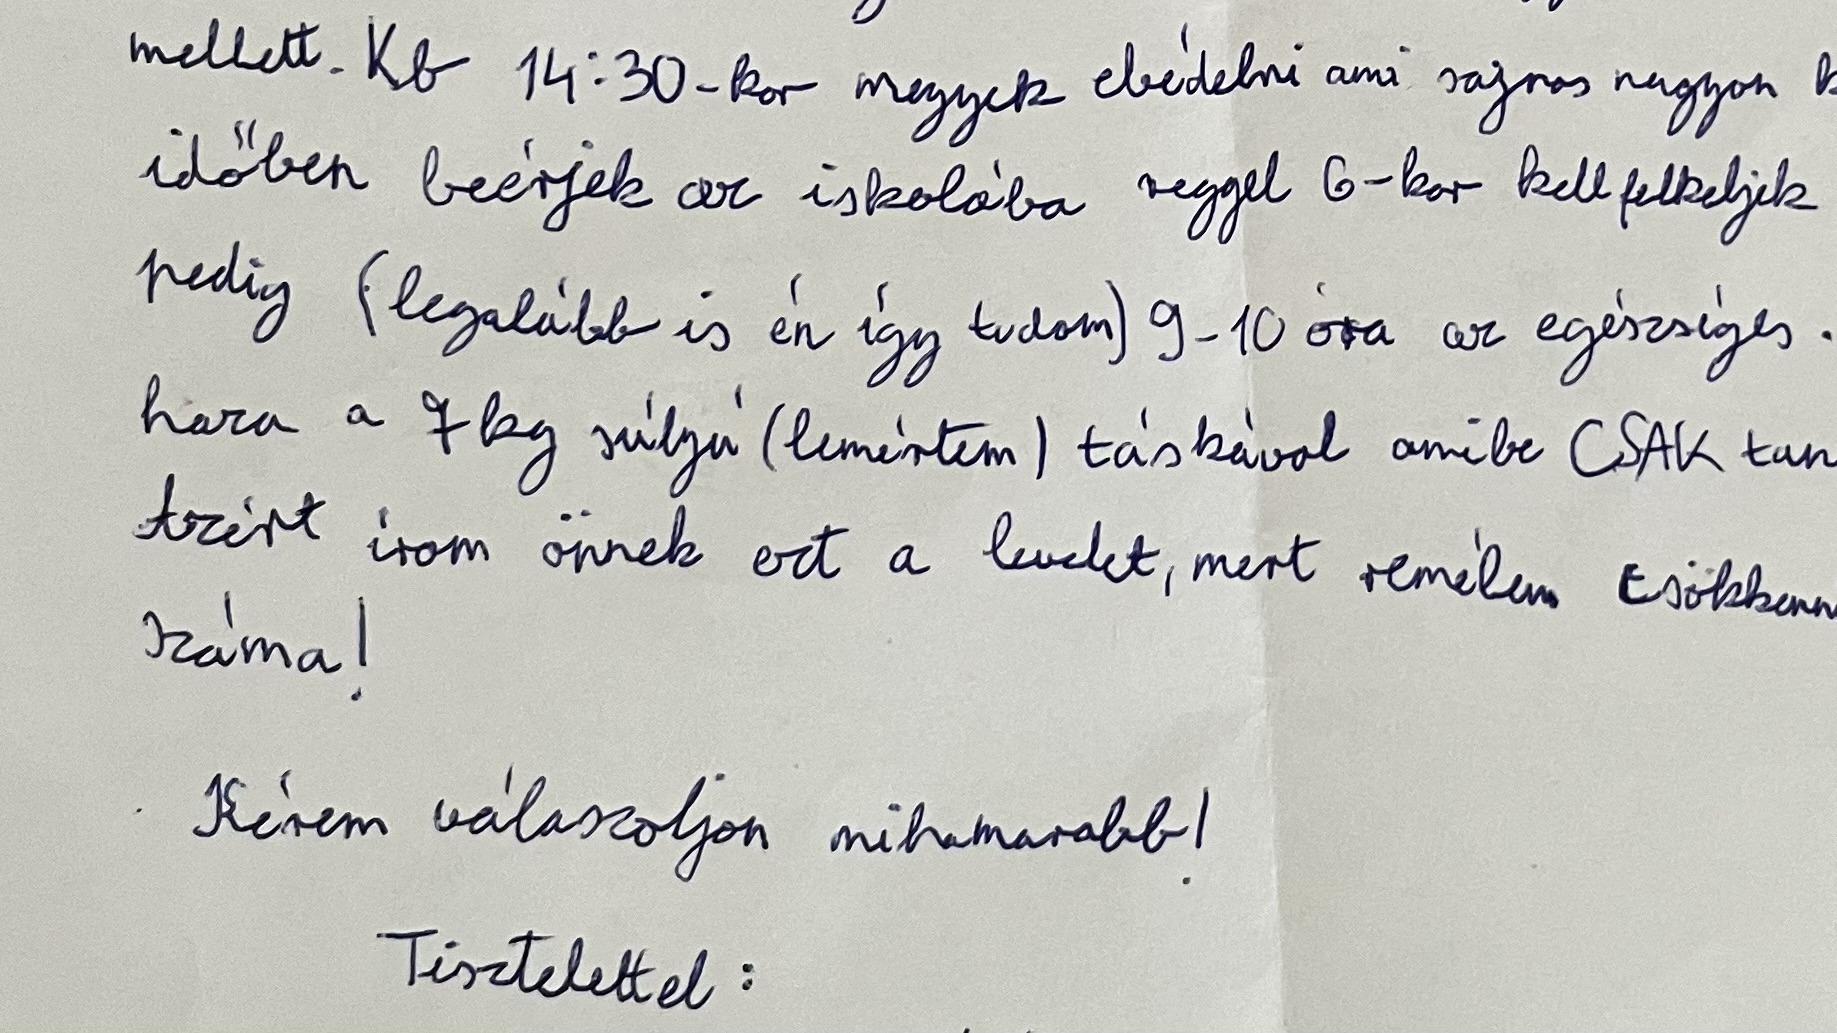 mellett. Kb 14:30-kor megyek ebédelni ami sajnos nagyon
időben beérjek az iskolába reggel 6-kor kell felkeljek
pedig (legalább is én így tudom) 9-10 óra az egészséges.
haza a 7kg súlyú (lemértem) táskával amibe CSAK tan
Azért írom önnek ezt a levelet, mert remélem csökkenn
száma!
Kérem válaszoljon mihamarabb!
Tisztelettel: